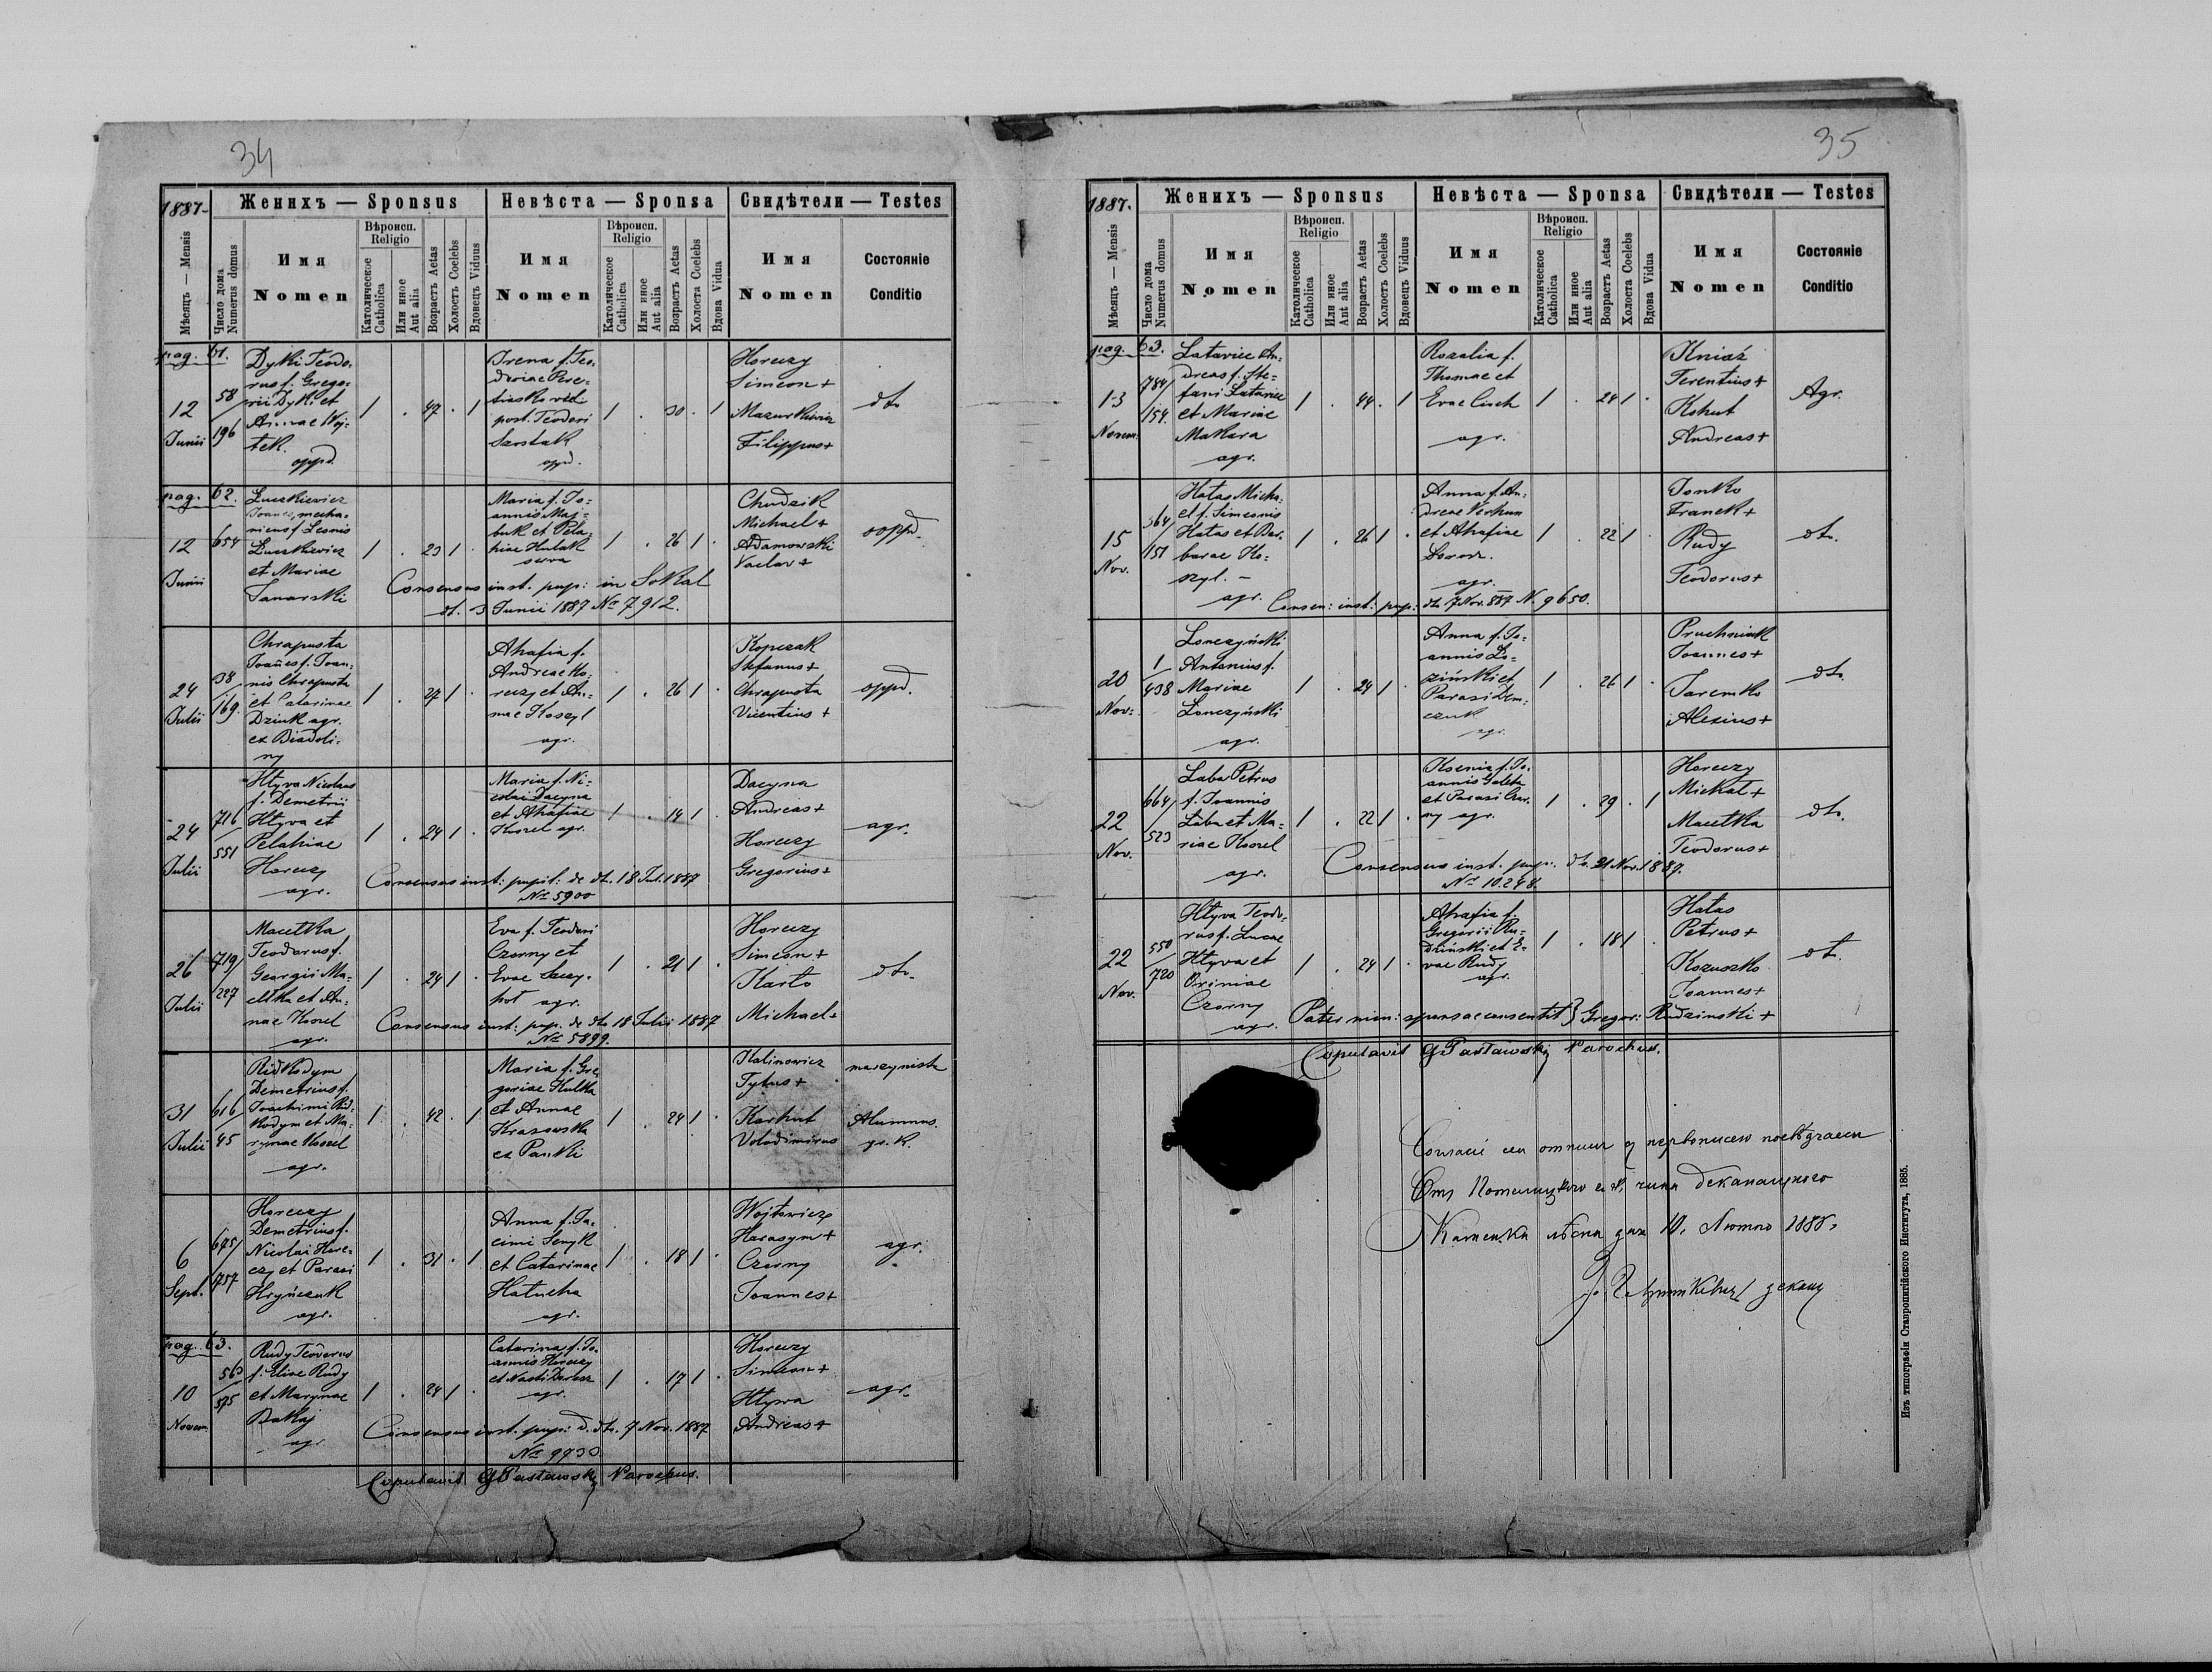 34
1887.
Женихъ — Sponsus
Невѣста — Sponsa
Свидѣтели — Testes
Мѣсяцъ — Mensis
Число дома
Numerus domus
Имя
Nomen
Вѣроисп.
Religio
Католическое
Catholica
Или иное
Aut alia
Возрастъ Aetas
Холостъ Coelebs
Вдовецъ Viduus
Имя
Nomen
Вѣроисп.
Religio
Католическое
Catholica
Или иное
Aut alia
Возрастъ Aetas
Холоста Coelebs
Вдова Vidua
Имя
Nomen
Состояніе
Conditio
pag. 61.
12
Junii
58/
196
Dyki Teodo-
rus f. Grego-
rii Dyki et
Annae Woj-
tek
oppd.
1 . 47 . 1
Irena f. Teo-
post. Teodori
Szostak
oppd.
1 . 30 . 1
Horeczy
Simeon +
Mazurkiewicz
Filippus +
dto
pag. 62.
12
Junii
654
Luczkiewicz
Joannes, mecha-
nicus f. Leonis
Luczkiewicz
et Mariae
Janarski
1 . 23 1 .
Maria f. Jo-
annis Maj-
buk et Pela-
hiae Hulak
serva
1 . 26 1 .
Chudzik
Michael +
Adamowski
Vaclav +
oppd.
Consensus inst. pup: in Sokal
dt. 3 Junii 1887 No 7912.
24
Julii
38/
169
Chrapusta
Joannes f. Joan-
nis Chrapusta
et Catarinae
Dziuk agr.
ex Biadoli-
ny
1 . 27 1 .
Ahafia f.
Andreae Ho-
reczy et An-
nae Koszyl
agr.
1 . 26 1 .
Kopczak
Stefanus +
Chrapusta
Vicentius +
oppd.
24
Julii
716/
551
Htyva Nicolaus
f. Demetrii
Htyva et
Pelahiae
Horeczy
agr.
1 . 24 1 .
Maria f. Ni-
colai Dacyna
et Ahafiae
Kozel agr.
1 . 19 1 .
Dacyna
Andreas +
Horeczy
Gregorius +
agr.
Consensus inst: pupil: de dto. 18 Jul. 1887
No 5900
26
Julii
719/
227
Macetka
Teodorus f.
Georgii Ma-
cetka et An-
nae Kozel
agr.
1 . 24 1 .
Eva f. Teodori
Czorny et
Evae
agr.
1 . 21 1 .
Horeczy
Simeon +
Karto
Michael +
dto.
Consensus inst: pup. de dto 18 Julii 1887
No 5899.
31
Julii
616/
45
Ridkodym
Demetrius f.
Joachimi Rid-
kodym et Ma-
rynae Kozel
agr.
1 . 42 . 1
Maria f. Gre-
goriae Hulka
et Annae
Krasowska
ex
1 . 24 1 .
Kalinowicz
Tytus +
Karhut
Volodimirus
maszynista
Alumnus.
gr. K.
6
Sept.
675/
757
Horeczy
Demetrius f.
Nicolai Hore-
czy et Parasi
Hryńczuk
agr.
1 . 31 . 1
Anna f. Jo-
cimi Senyk
et Catarinae
Hatucha
agr.
1 . 18 1 .
Wojtowicz
Harasym +
Czorny
Joannes +
agr.
pag. 63.
10
Novem.
560/
575
Rudy Teodorus
f. Eliae Rudy
et Marynae
Bakaj
agr.
1 . 24 1 .
Catarina f. Jo-
annis Horeczy
et Nasti
agr.
1 . 17 1 .
Horeczy
Simeon +
Htywa
Andreas +
agr.
Consensus inst. pup: d. dto. 7 Nov. 1887
No 9933
Copulavit Parochus.
35
1887.
Женихъ — Sponsus
Невѣста — Sponsa
Свидѣтели — Testes
Мѣсяцъ — Mensis
Число дома
Numerus domus
Имя
Nomen
Вѣроисп.
Religio
Католическое
Catholica
Или иное
Aut alia
Возрастъ Aetas
Холостъ Coelebs
Вдовецъ Viduus
Имя
Nomen
Вѣроисп.
Religio
Католическое
Catholica
Или иное
Aut alia
Возрастъ Aetas
Холоста Coelebs
Вдова Vidua
Имя
Nomen
Состояніе
Conditio
pag. 63.
13
Novem.
784/
154
Lataviec An-
dreas f. Ste-
fani Lataviec
et Mariae
Makara
agr.
1 . 44 . 1
Rozalia f.
Thomae et
Evae Cisch
agr.
1 . 24 1 .
Kniaź
Terentius +
Kohut
Andreas +
Agr.
15
Nov.
364/
151
Hatas Micha-
el f. Simeonis
Hatas et Bar-
barae Ko-
szyl. -
agr.
1 . 26 1 .
Anna f. An-
dreae Verhun
et Ahafiae
agr.
1 . 22 1 .
Jonko
Franek +
Rudy
Teodorus +
dto.
Consen: inst: pup: dto 7 Nov. 887 N. 9650.
20
Nov.
1/
438
Lonczyński
Antonius f.
Mariae
Lonczyński
agr.
1 . 24 1 .
Anna f. Jo-
annis Lo-
ziński et
Parasi Dem-
czuk
agr.
1 . 26 1 .
Pruchniak
Joannes +
Jaremko
Alexius +
dto.
22
Nov.
664/
523
Laba Petrus
f. Joannis
Laba et Ma-
riae Kozel
agr.
1 . 22 1 .
Ksenia f. Jo-
annis Galeta
et Parasi Czor-
ny agr.
1 . 29 . 1
Horeczy
Michal +
Macetka
Teodorus +
dto.
Consensus inst. pup: dto. 21 Nov. 1887.
No 10.248.
22
Nov.
550/
720
Htyva Teodo-
rus f. Lucae
Htyva et
Oriniae
Czorny
agr.
1 . 24 1 .
Ahafia f.
Gregorii Ru-
dziński et E-
vae Rudy
agr.
1 . 18 1 .
Hatas
Petrus +
Kozuszko
Joannes +
dto.
Pater min: sponsae consentit } Gregor: Rudzinski +
Copulavit Parochus.
10. Лютого 1888.
Изъ типографіи Ставропигійского Института, 1885.